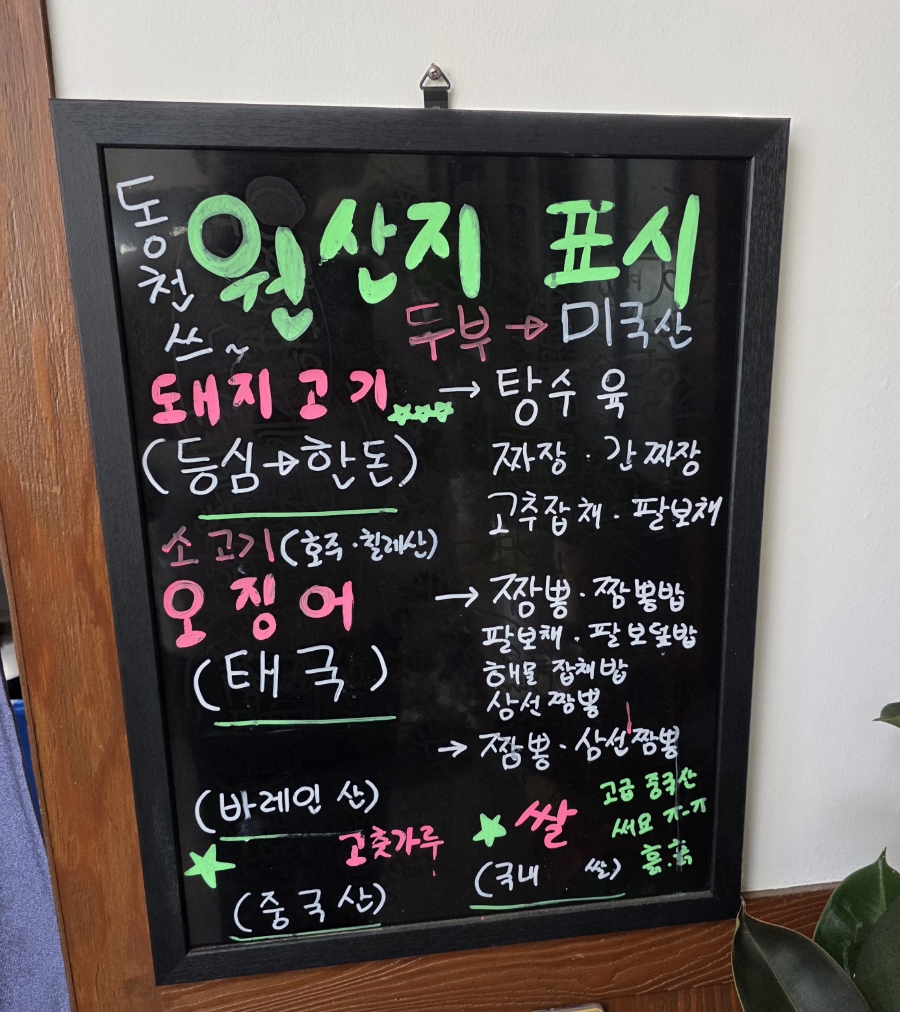 동천
쓰~
원산지 표시
두부 → 미국산
돼지고기 → 탕수육
(등심→한돈) 짜장·간짜장
고추잡채·팔보채
소고기(호주·칠레산)
오징어 → 짬뽕·짬뽕밥
(태국) 팔보채·팔보덮밥
해물잡채밥
삼선짬뽕
→ 짬뽕·삼선짬뽕
(바레인 산)
고춧가루
(중국산)
쌀
(국내 쌀)
고급 중국산
써요 ㅠ-ㅠ
흙.흙